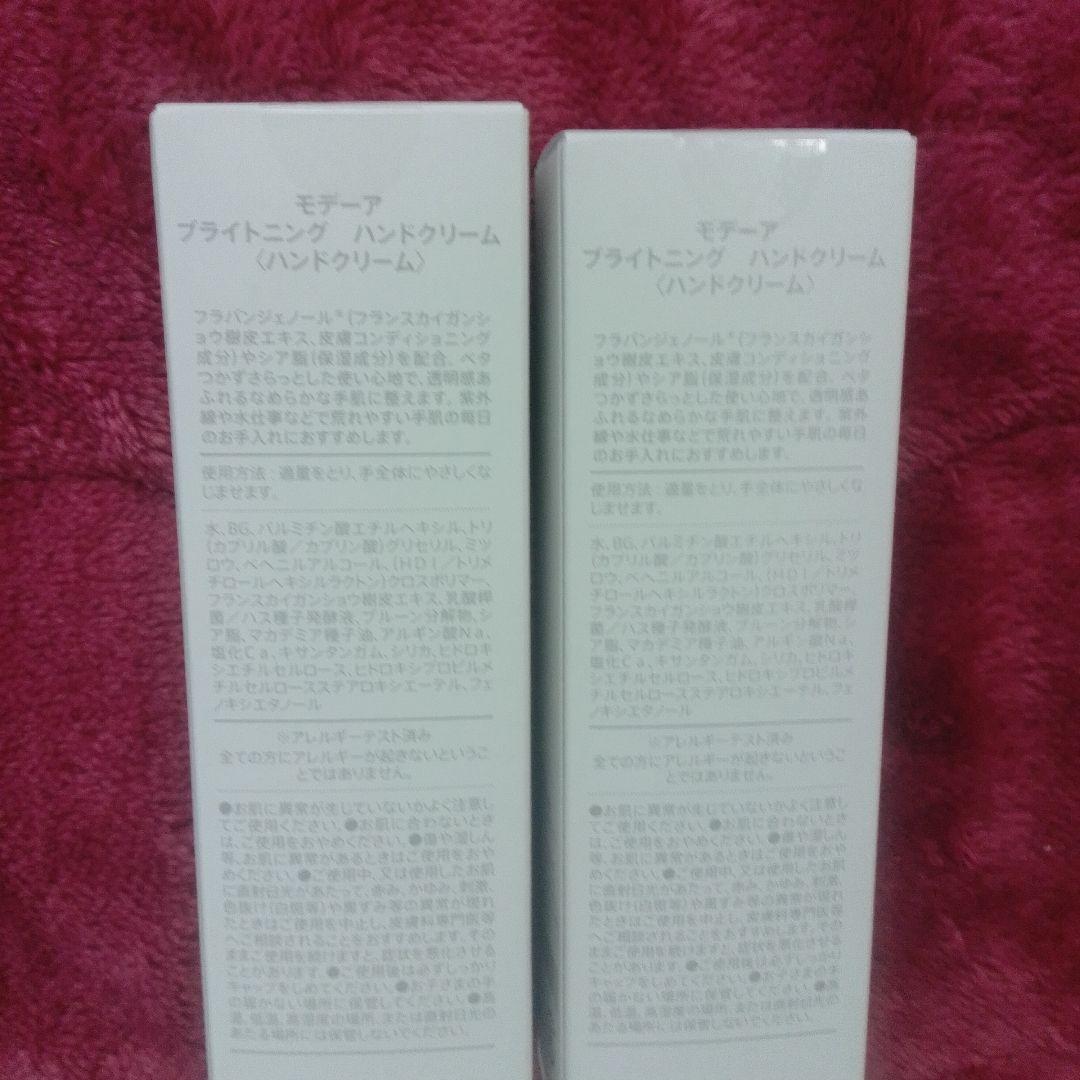 モデーア
ブライトニング　ハンドクリーム
〈ハンドクリーム〉
フラバンジェノール®(フランスカイガンシ
ョウ樹皮エキス、皮膚コンディショニング
成分)やシア脂(保湿成分)を配合。ベタ
つかずさらっとした使い心地で、透明感あ
ふれるなめらかな手肌に整えます。紫外
線や水仕事などで荒れやすい手肌の毎日
のお手入れにおすすめします。
使用方法：適量をとり、手全体にやさしくな
じませます。
水、BG、パルミチン酸エチルヘキシル、トリ
(カプリル酸／カプリン酸)グリセリル、ミツ
ロウ、ベヘニルアルコール、(HDI／トリメ
チロールヘキシルラクトン)クロスポリマー、
フランスカイガンショウ樹皮エキス、乳酸桿
菌／ハス種子発酵液、プルーン分解物、シ
ア脂、マカデミア種子油、アルギン酸Na、
塩化Ca、キサンタンガム、シリカ、ヒドロキ
シエチルセルロース、ヒドロキシプロピルメ
チルセルロースステアロキシエーテル、フェ
ノキシエタノール
※アレルギーテスト済み
全ての方にアレルギーが起きないというこ
とではありません。
●お肌に異常が生じていないかよく注意し
てご使用ください。●お肌に合わないとき
は、ご使用をおやめください。●傷や湿しん
等、お肌に異常があるときはご使用をおや
めください。●ご使用中、又は使用したお肌
に直射日光があたって、赤み、かゆみ、刺激、
色抜け(白斑等)や黒ずみ等の異常が現れ
たときはご使用を中止し、皮膚科専門医等
へご相談されることをおすすめします。その
ままご使用を続けますと、症状を悪化させる
ことがあります。●ご使用後は必ずしっかり
キャップをしめてください。●お子さまの手
の届かない場所に保管してください。●高
温、低温、高湿度の場所、または直射日光の
あたる場所には保管しないでください。
モデーア
ブライトニング　ハンドクリーム
〈ハンドクリーム〉
フラバンジェノール®(フランスカイガンシ
ョウ樹皮エキス、皮膚コンディショニング
成分)やシア脂(保湿成分)を配合。ベタ
つかずさらっとした使い心地で、透明感あ
ふれるなめらかな手肌に整えます。紫外
線や水仕事などで荒れやすい手肌の毎日
のお手入れにおすすめします。
使用方法：適量をとり、手全体にやさしくな
じませます。
水、BG、パルミチン酸エチルヘキシル、トリ
(カプリル酸／カプリン酸)グリセリル、ミツ
ロウ、ベヘニルアルコール、(HDI／トリメ
チロールヘキシルラクトン)クロスポリマー、
フランスカイガンショウ樹皮エキス、乳酸桿
菌／ハス種子発酵液、プルーン分解物、シ
ア脂、マカデミア種子油、アルギン酸Na、
塩化Ca、キサンタンガム、シリカ、ヒドロキ
シエチルセルロース、ヒドロキシプロピルメ
チルセルロースステアロキシエーテル、フェ
ノキシエタノール
※アレルギーテスト済み
全ての方にアレルギーが起きないというこ
とではありません。
●お肌に異常が生じていないかよく注意し
てご使用ください。●お肌に合わないとき
は、ご使用をおやめください。●傷や湿しん
等、お肌に異常があるときはご使用をおや
めください。●ご使用中、又は使用したお肌
に直射日光があたって、赤み、かゆみ、刺激、
色抜け(白斑等)や黒ずみ等の異常が現れ
たときはご使用を中止し、皮膚科専門医等
へご相談されることをおすすめします。その
ままご使用を続けますと、症状を悪化させる
ことがあります。●ご使用後は必ずしっかり
キャップをしめてください。●お子さまの手
の届かない場所に保管してください。●高
温、低温、高湿度の場所、または直射日光の
あたる場所には保管しないでください。